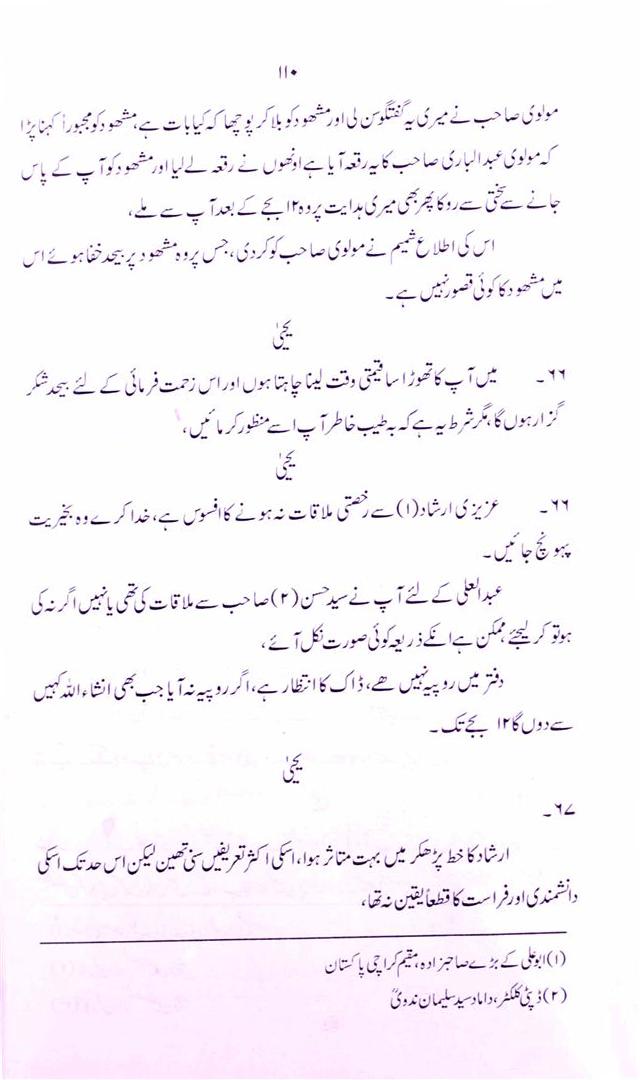 ۱۱۰
مولوی صاحب نے میری یہ گفتگو سن لی اور مشھود کو بلا کر پوچھا کہ کیا بات ہے، مشھود کو مجبوراً کہنا پڑا
کہ مولوی عبدالباری صاحب کا یہ رقعہ آیا ہے اونھوں نے رقعہ لے لیا اور مشھود کو آپ کے پاس
جانے سے سختی سے روکا پھر بھی میری ہدایت پر وہ ۱۲ بجے کے بعد آپ سے ملے،
اس کی اطلاع شمیم نے مولوی صاحب کو کردی، جس پر وہ مشھود پر بیحد خفا ہوئے اس
میں مشھود کا کوئی قصور نہیں ہے۔
یحییٰ
۶۶۔ میں آپ کا تھوڑا سا قیمتی وقت لینا چاہتا ہوں اور اس زحمت فرمائی کے لئے بیحد شکر
گزار ہوں گا، مگر شرط یہ ہے کہ بہ طیب خاطر آپ اسے منظور کرمائیں،
یحییٰ
۶۶۔ عزیزی ارشاد (۱) سے رخصتی ملاقات نہ ہونے کا افسوس ہے، خدا کرے وہ بخیریت
پہونچ جائیں۔
عبدالعلی کے لئے آپ نے سید حسن (۲) صاحب سے ملاقات کی تھی یا نہیں اگر نہ کی
ہو تو کر لیجئے، ممکن ہے انکے ذریعہ کوئی صورت نکل آئے،
دفتر میں روپیہ نہیں ھے، ڈاک کا انتظار ہے، اگر روپیہ نہ آیا جب بھی انشاء اللہ کہیں
سے دوں گا ۱۲ بجے تک۔
یحییٰ
۶۷۔
ارشاد کا خط پڑھکر میں بہت متاثر ہوا، اسکی اکثر تعریفیں سنی تھین لیکن اس حد تک اسکی
دانشمندی اور فراست کا قطعاً یقین نہ تھا،
(۱) ابوعلی کے بڑے صاحبزادہ، مقیم کراچی پاکستان
(۲) ڈپٹی کلکٹر، داماد سید سلیمان ندویؒ